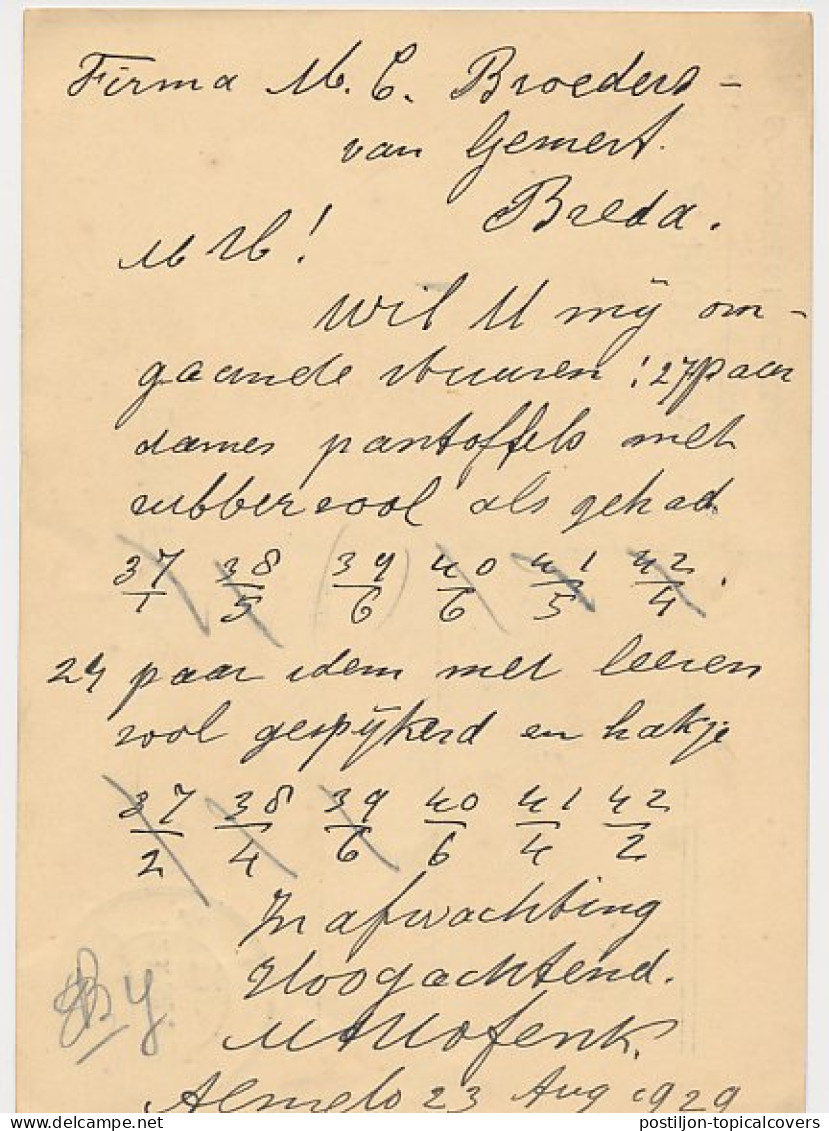 Firma M. C. Broeders-
van Gemert.
Breda.
M H!
Wil U mij om-
gaande sturen: 27 paar
dames pantoffels met
rubberzool als gehad
37/1 38/5 39/6 40/6 41/5 42/4.
24 paar idem met leeren
zool gespijkerd en hakje
37/2 38/4 39/6 40/6 41/4 42/2
In afwachting
Hoogachtend.
Almelo 23 Aug 1929
postiljon-topicalcovers